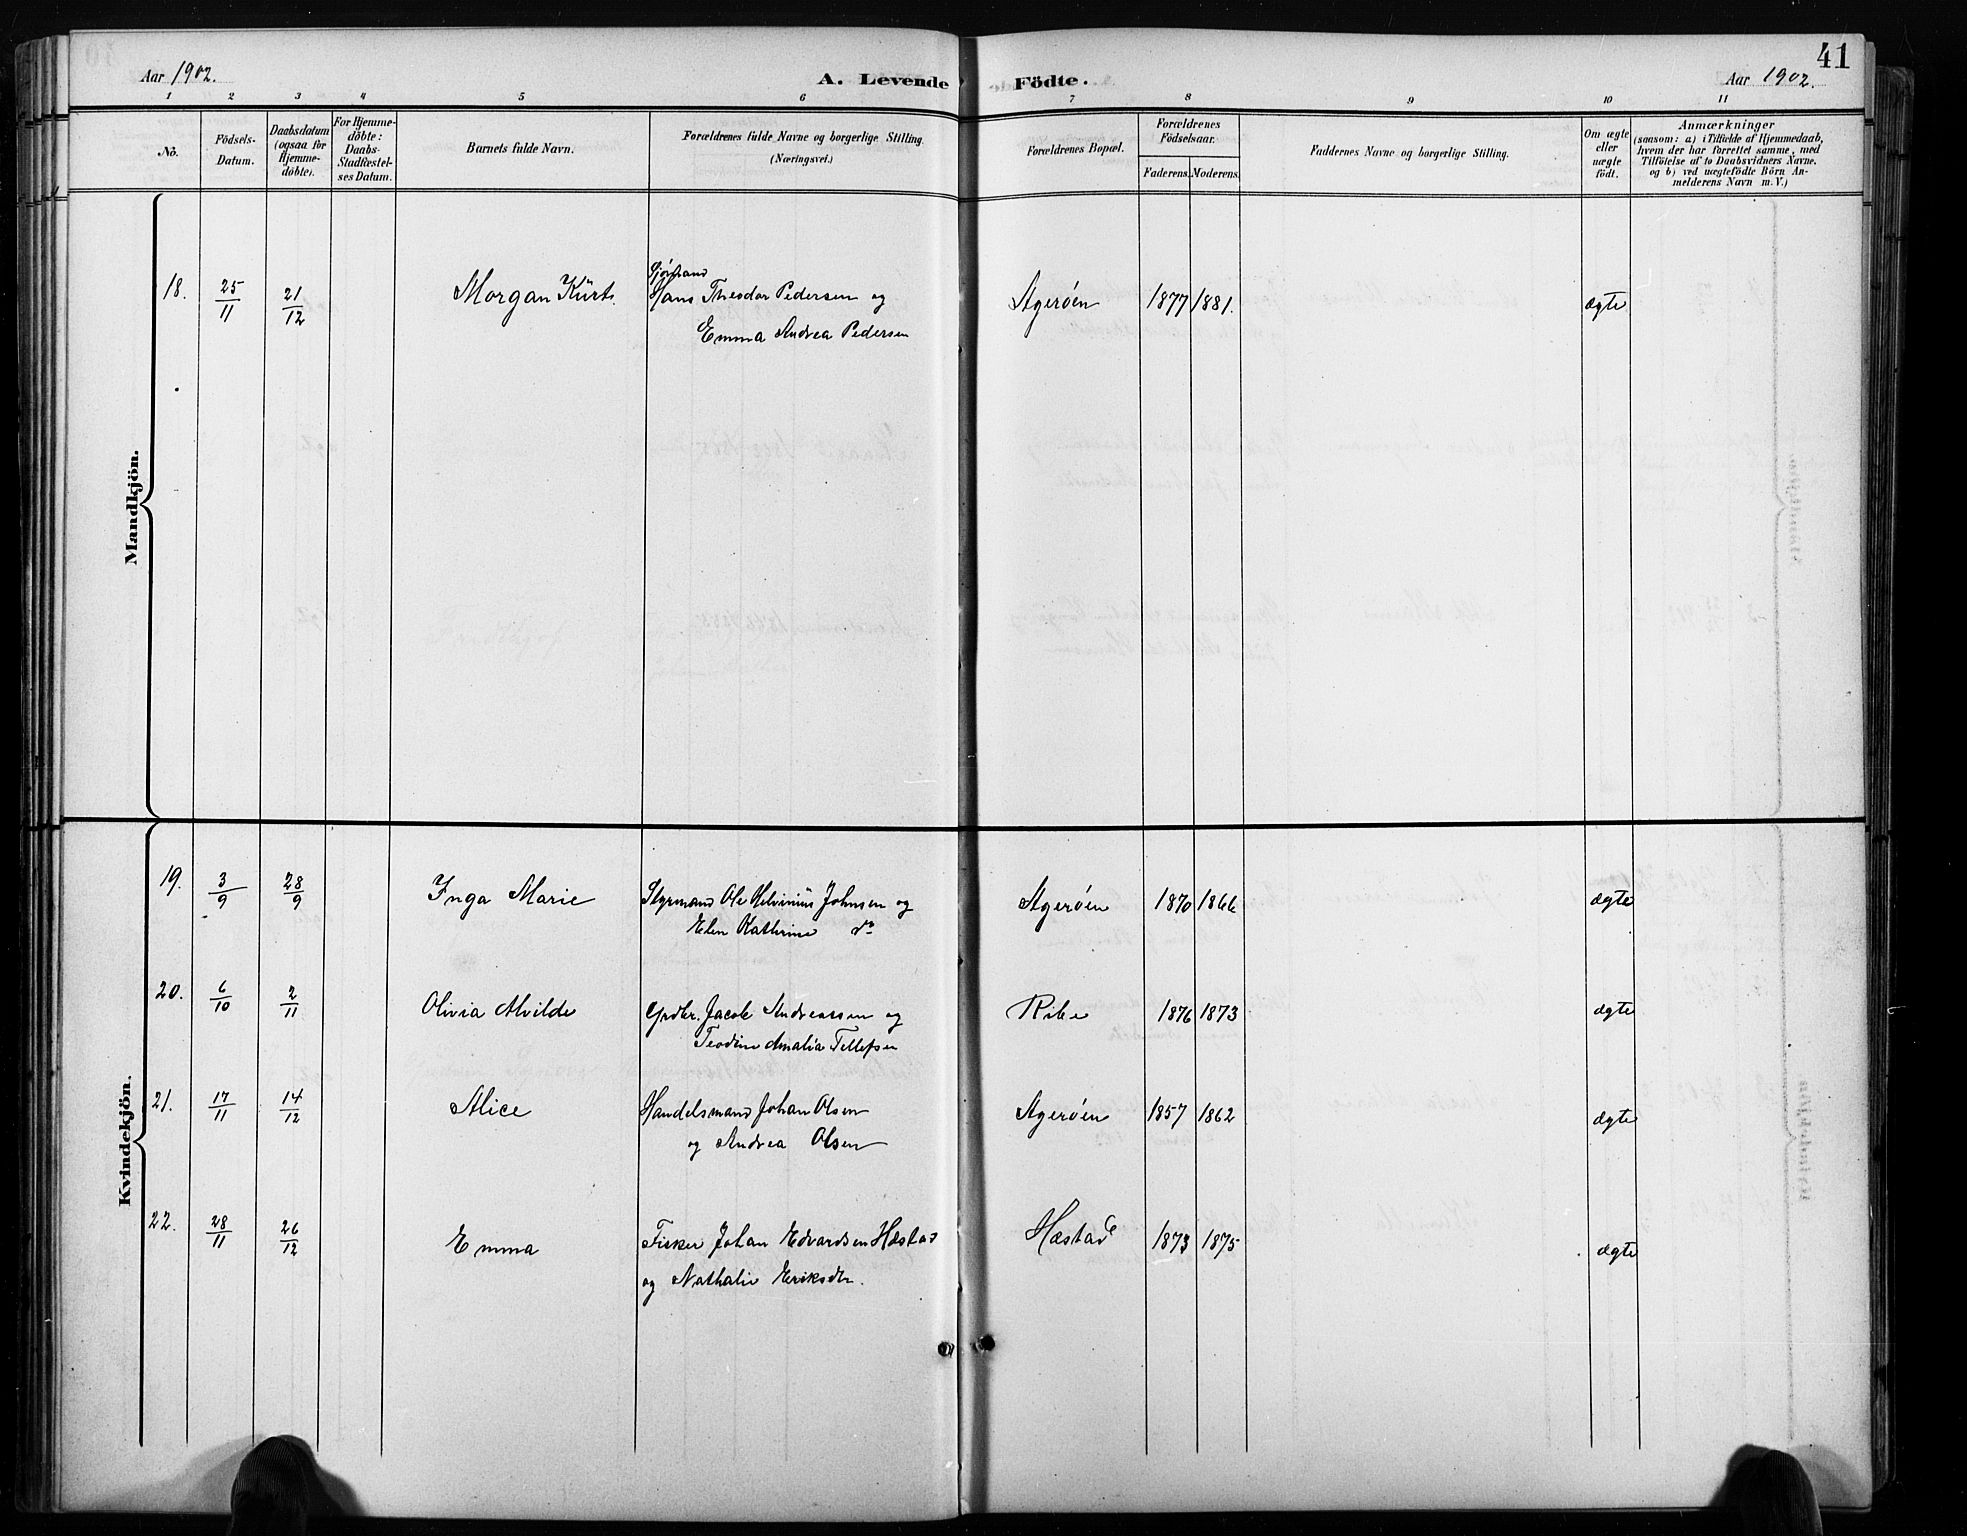 41
Aar 1902.
A. Levende Födte.
Aar 1902.
1 2 3 4 5 6 7 8 9 10 11
No.
Födsels-Datum.
Daabsdatum (ogsaa for Hjemme-döbte).
For Hjemme-döbte: Daabs-Stadfæstel-ses Datum.
Barnets fulde Navn.
Forældrenes fulde Navne og borgerlige Stilling (Næringsvei.)
Forældrenes Bopæl.
Forældrenes Födselsaar.
Faderens. Moderens.
Faddernes Navne og borgerlige Stilling.
Om ægte eller uægte födt.
Anmærkninger
(saasom: a) i Tilfælde af Hjemmedaab,
hvem der har forrettet samme, med
Tilföielse af to Daabsvidners Navne.
og b) ved uægtefödte Börn An-
melderens Navn m. V.)
Mandkjön.
18. 25/11 21/12 Morgan Kürt. Sjømand Hans Theodor Pedersen og Agerøen 1877 1881. ægte
Emma Andrea Pedersen
Kvindekjön.
19. 3/9 28/9 Inga Marie Styrmand Ole Helvinius Johnsen og Agerøen 1870 1866 ægte
Elen Kathrine do
20. 6/10 2/11 Olivia Alvilde Grdbr. Jacob Andreassen og Ribe 1876 1873 ægte
Teodine Amalia Tellefsen
21. 17/11 14/12 Alice Handelsmand Johan Olsen Agerøen 1857 1862 ægte
og Andrea Olsen
22. 28/11 26/12 Emma Fisker Johan Edvardsen Hæstad Hæstad 1873 1875 ægte
og Nathalie Eriksdtr.